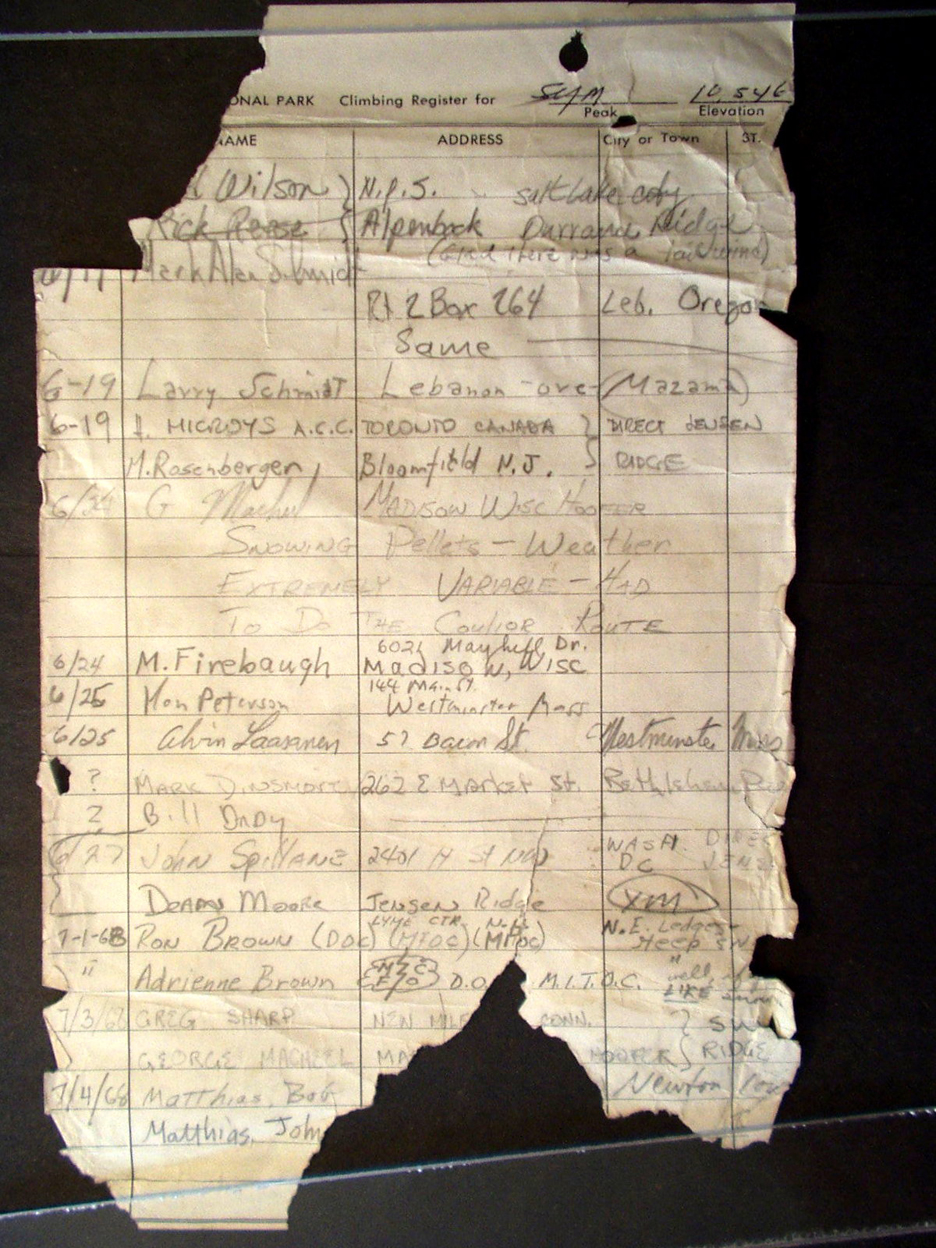 ONAL PARK Climbing Register for SYM 10,546
Peak Elevation
NAME ADDRESS City or Town ST.
Wilson } N.P.S. Salt Lake city
Rick Reese } Alpenbock Durrance Ridge
Mark Alan Schmidt (Glad there was a tailwind)
Rt 2 Box 264 Leb. Orego
Same
6-19 Larry Schmidt Lebanon ore (Mazama)
6-19 MICROYS A.C.C. TORONTO CANADA } DIRECT JENSEN
M. Rosenberger, Bloomfield N.J. } RIDGE
G Machel MADISON WISC HOOFER
SNOWING Pellets - Weather
EXTREMELY VARIABLE - HAD
To Do THE Coulior ROUTE
6021 Mayhill Dr.
6/24 M. Firebaugh MadisoN, Wisc
144 Main St.
6/25 Peterson Westminster Mass
6/25 Alvin Laasanen 57 Bacon St. Westminster Mass
? MARK DINSMORE 262 E Market St. Bethlehem Pa
? Bill
6/27 JOHN SPILLANE 2401 H St NW WASH DIREC
DC JENS
DEAN MOORE JENSEN Ridge
LYME CTR. N.H. N.E. Ledges -
7-1-68 RON BROWN (DOC) (MITOC) Steep SN
" Adrienne Brown D.O M.I.T.O.C. "
LIKE
7/3/68 GREG SHARP NEW MILF CONN. }
GEORGE MACHEL MA HOOFER } RIDGE
7/4/68 Matthias, Bob Newton
Matthias, John